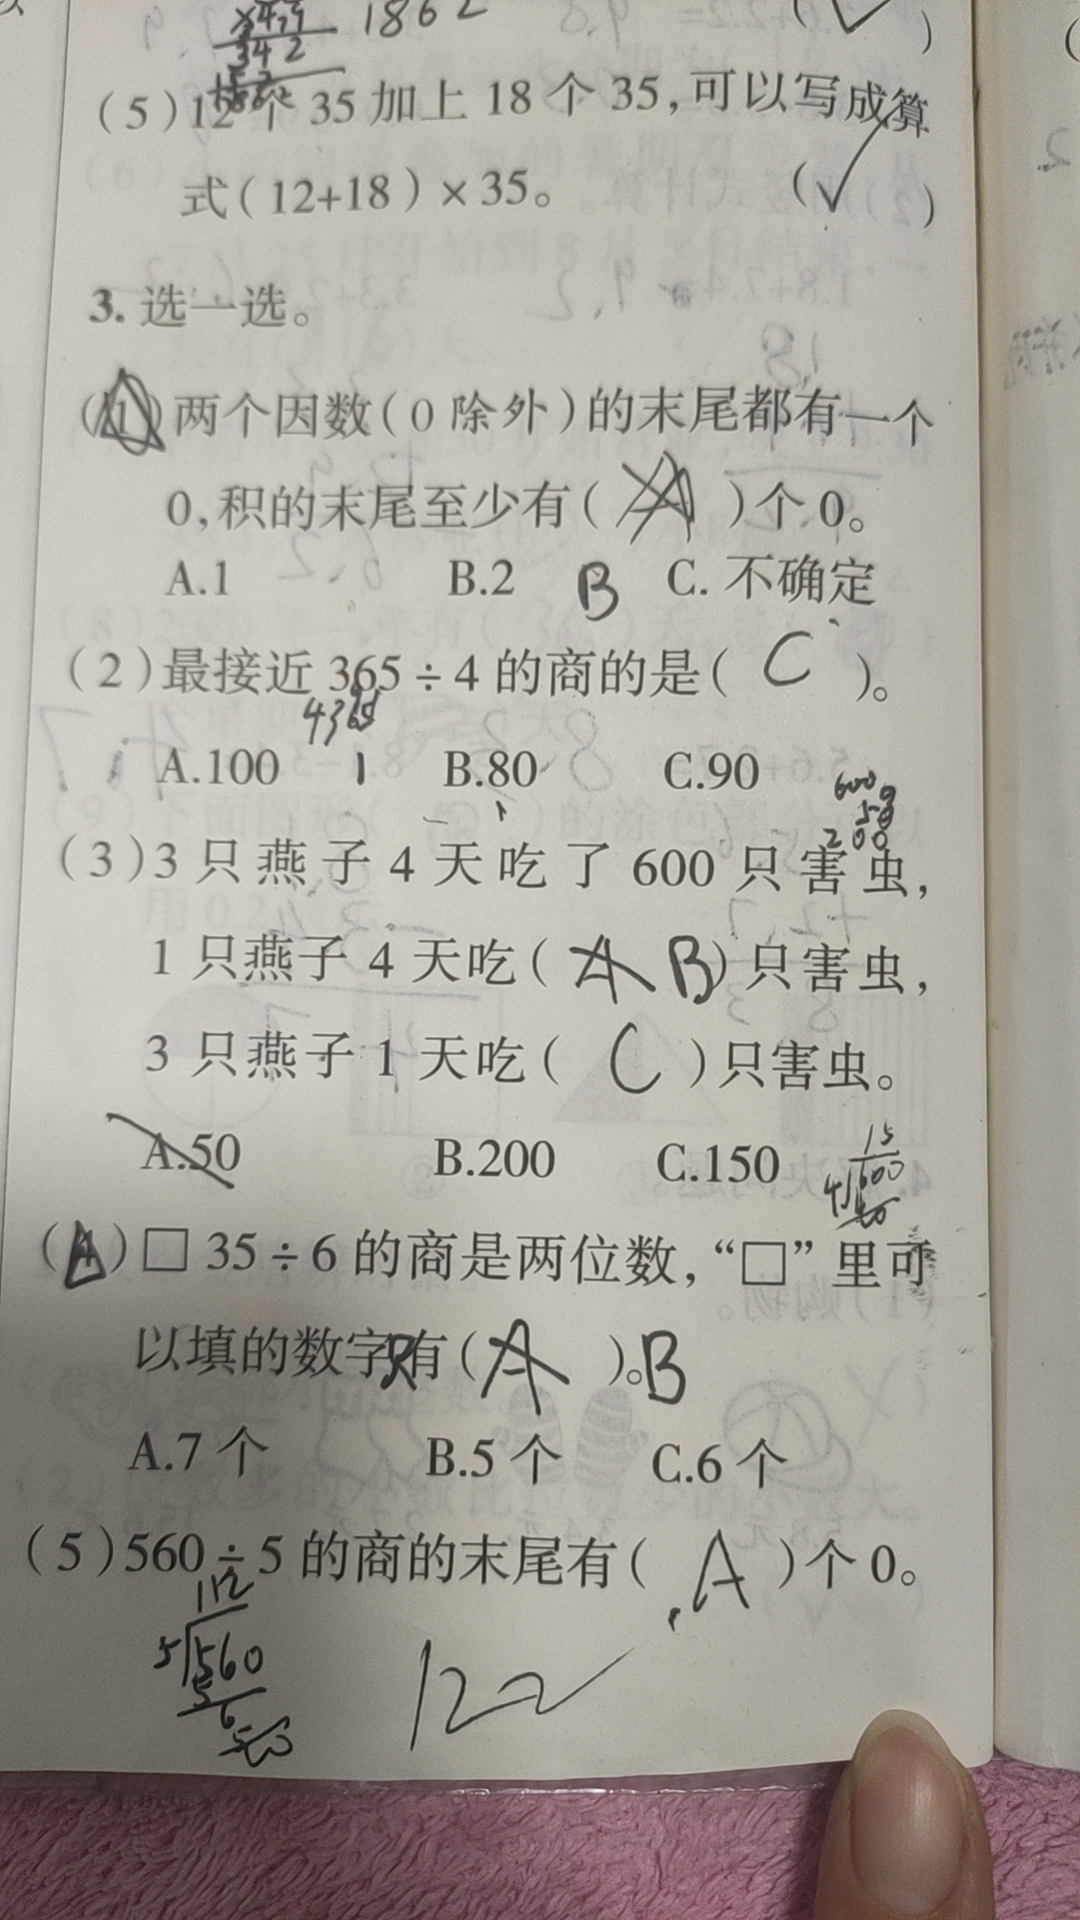 342
1862
(✓)
(5)12个35加上18个35,可以写成算
式(12+18)×35。 (✓)
3.选一选。
(1)两个因数(0除外)的末尾都有一个
0,积的末尾至少有( A )个0。
A.1 B.2 B C.不确定
(2)最接近365÷4的商的是( C )。
4365
1
A.100 B.80 C.90
600
200
(3)3只燕子4天吃了600只害虫,
1只燕子4天吃( A B )只害虫,
3只燕子1天吃( C )只害虫。
A.50 B.200 C.150
15
4 600
(4)□35÷6的商是两位数,“□”里可
以填的数字有( A )。B
A.7个 B.5个 C.6个
(5)560÷5的商的末尾有( A )个0。
112
5 560
5
6
122